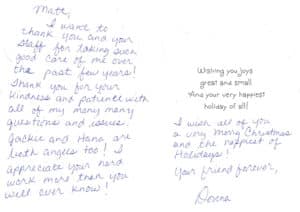 Matt,
I want to
thank you and your
staff for taking such
good care of me over
the past few years!
Thank you for your
kindness and patience with
all of my many many
questions and issues.
Jackie and Hana are
both angels too! I
appreciate your hard
work more than you
will ever know!
Wishing you joys
great and small
And your very happiest
holiday of all!
I wish all of you
a very Merry Christmas
and the happiest of
Holidays!
Your friend forever,
Donna